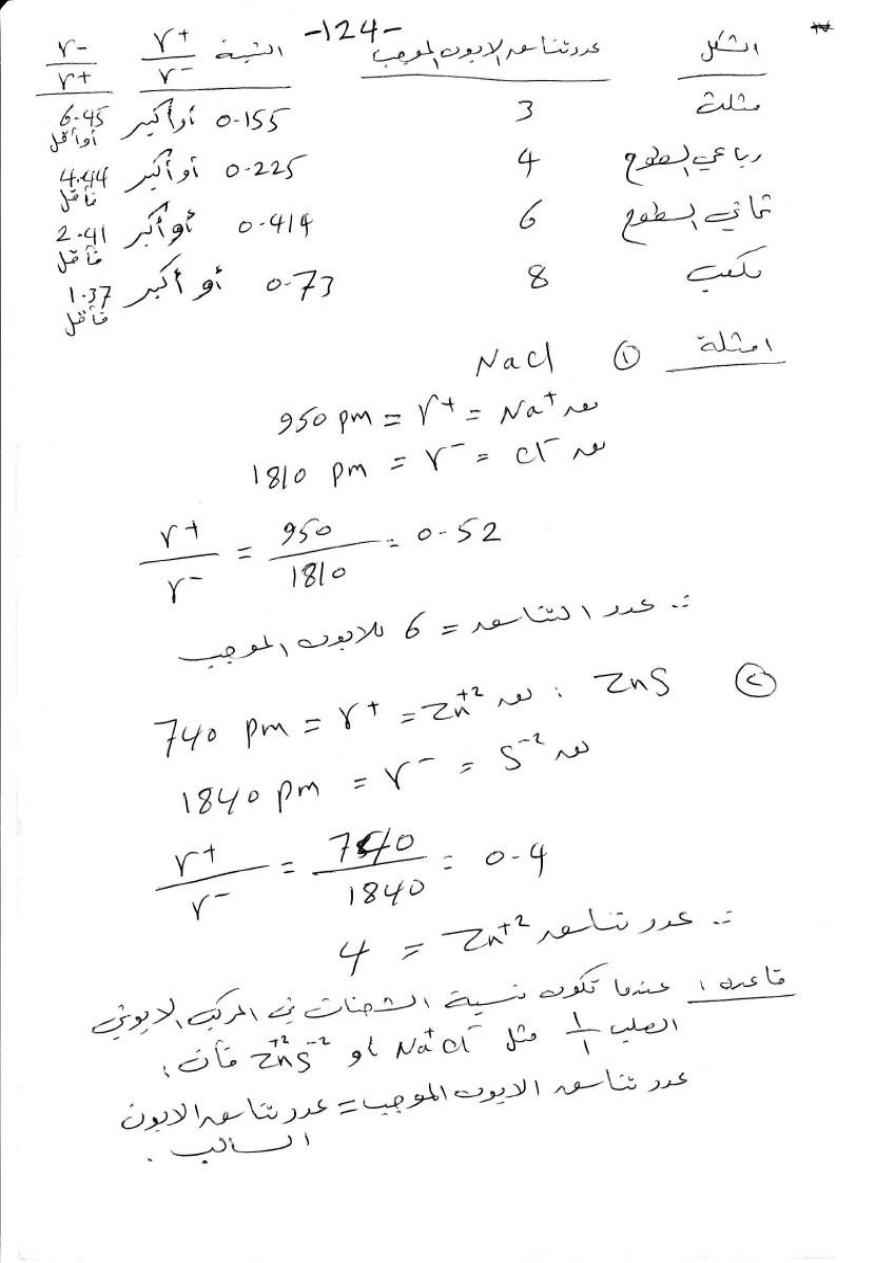 -124-
الشكل عدد تناسق الايون الموجب النسبة r+/r- r-/r+
مثلث 3 0.155 أو أكبر 6.45 أو أقل
رباعي السطوح 4 0.225 أو أكبر 4.44 فأقل
ثماني السطوح 6 0.414 أو أكبر 2.41 فأقل
مكعب 8 0.73 أو أكبر 1.37 فأقل
امثلة ① NaCl
نق Na+ = r+ = 950 pm
نق Cl- = r- = 1810 pm
r+/r- = 950/1810 = 0.52
∴ عدد التناسق = 6 للايون الموجب
② ZnS : نق Zn+2 = r+ = 740 pm
نق S-2 = r- = 1840 pm
r+/r- = 740/1840 = 0.4
∴ عدد تناسق Zn+2 = 4
قاعدة : عندما تكون نسبة الشحنات في المركب الايوني
الصلب 1/1 مثل Na+Cl- او Zn+2S-2 فأن :
عدد تناسق الايون الموجب = عدد تناسق الايون
السالب .